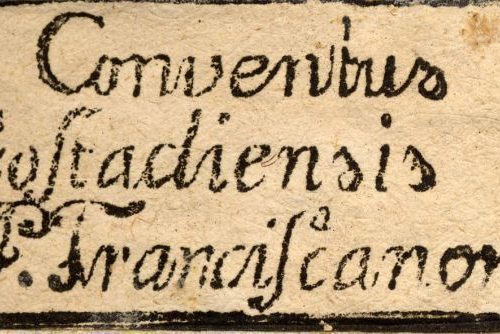 Conventus
oſtadiensis
P. Franciſcanor